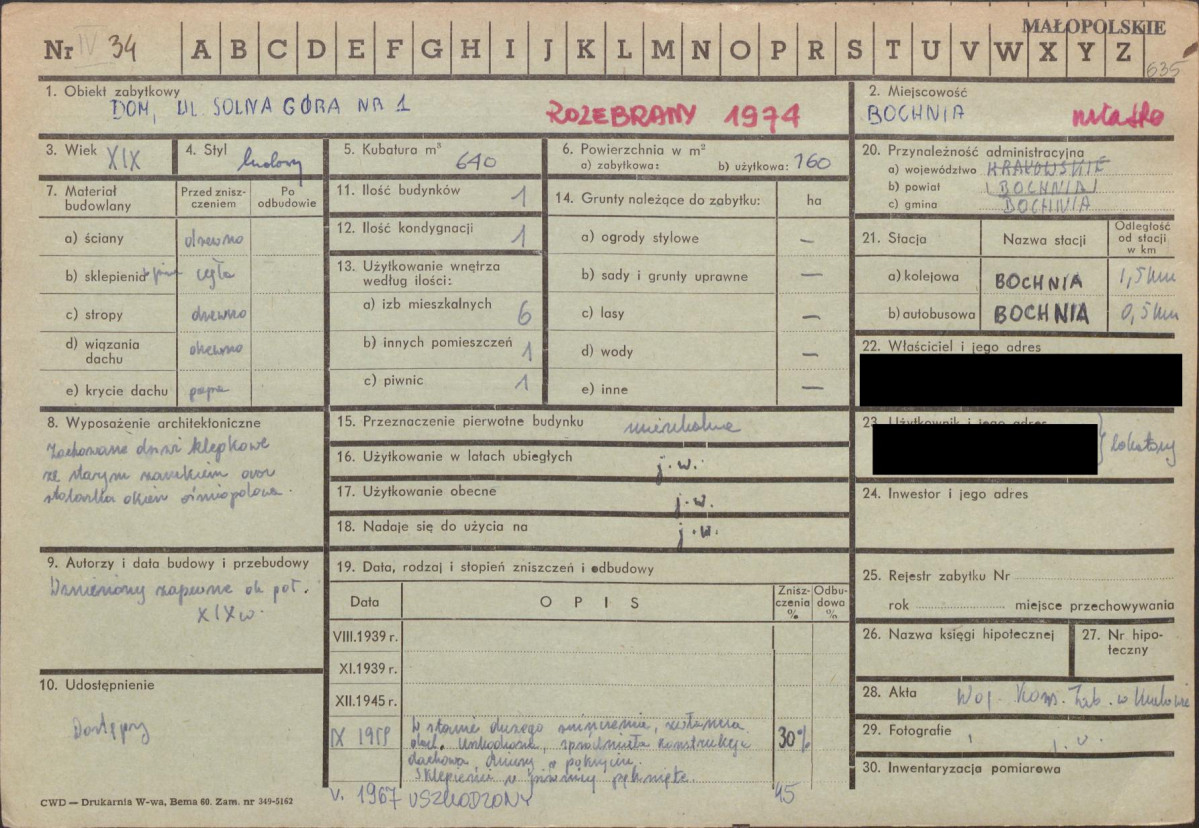 MAŁOPOLSKIE
Nr IV 34 A B C D E F G H I J K L M N O P R S T U V W X Y Z
635
1. Obiekt zabytkowy
DOM, UL. SOLNA GÓRA NR 1
ROZEBRANY 1974
2. Miejscowość
BOCHNIA
miasto
3. Wiek XIX
4. Styl ludowy
5. Kubatura m³ 640
6. Powierzchnia w m²
a) zabytkowa: b) użytkowa: 160
20. Przynależność administracyjna
a) województwo KRAKOWSKIE
b) powiat BOCHNIA
c) gmina BOCHNIA
7. Materiał budowlany
Przed zniszczeniem
Po odbudowie
a) ściany drewno
b) sklepienia cegła
c) stropy drewno
d) wiązania dachu drewno
e) krycie dachu papa
11. Ilość budynków 1
12. Ilość kondygnacji 1
13. Użytkowanie wnętrza według ilości:
a) izb mieszkalnych 6
b) innych pomieszczeń 1
c) piwnic 1
14. Grunty należące do zabytku: ha
a) ogrody stylowe —
b) sady i grunty uprawne —
c) lasy —
d) wody —
e) inne —
21. Stacja
Nazwa stacji
Odległość od stacji w km
a) kolejowa BOCHNIA 1,5 km
b) autobusowa BOCHNIA 0,5 km
22. Właściciel i jego adres
23. Użytkownik i jego adres
lokatorzy
8. Wyposażenie architektoniczne
Zachowane drzwi klepkowe
ze starym zamkiem oraz
stolarka okien ośmiopolowa.
15. Przeznaczenie pierwotne budynku mieszkalne
16. Użytkowanie w latach ubiegłych j.w.
17. Użytkowanie obecne j.w.
18. Nadaje się do użycia na j.w.
24. Inwestor i jego adres
9. Autorzy i data budowy i przebudowy
Wzniesiony zapewne ok. poł.
XIX w.
19. Data, rodzaj i stopień zniszczeń i odbudowy
Data
OPIS
Zniszczenia %
Odbudowa %
VIII.1939 r.
XI.1939 r.
XII.1945 r.
IX 1959
W stanie dużego zniszczenia, zwłaszcza
uszkodzona, spróchniała konstrukcja
dachowa, dziury w pokryciu.
Sklepienie w piwnicy pęknięte.
30%
V. 1967 USZKODZONY 45
25. Rejestr zabytku Nr
rok miejsce przechowywania
26. Nazwa księgi hipotecznej
27. Nr hipoteczny
10. Udostępnienie
Dostępny
28. Akta Woj. Kons. Zab. w Krakowie
29. Fotografie j.w.
30. Inwentaryzacja pomiarowa
CWD — Drukarnia W-wa, Bema 60. Zam. nr 349-5162